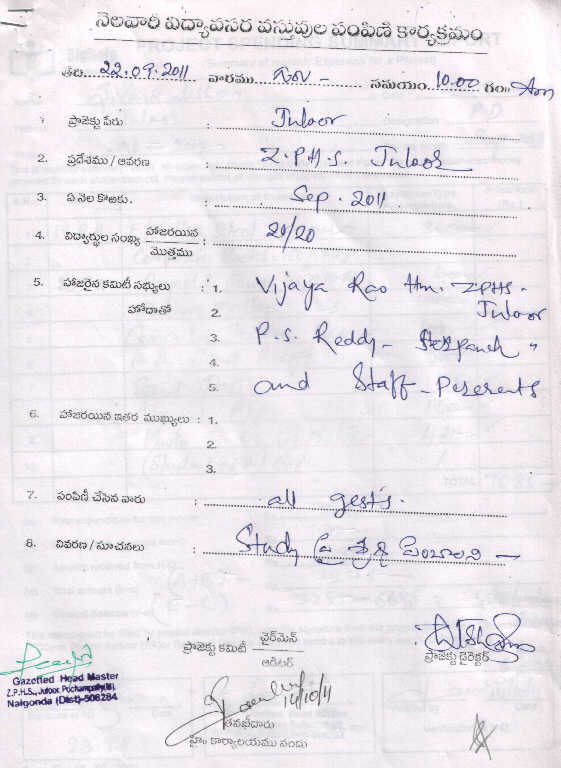 నెలవారీ విద్యావసర వస్తువుల పంపిణి కార్యక్రమం
తేది. 22.09.2011 వారము గురు - సమయం. 10.00 గం॥ Am
1. ప్రాజెక్టు పేరు : Juloor
2. ప్రదేశము / ఆవరణ : Z.P.H.S. Juloor
3. ఏ నెల కొఱకు. : Sep. 2011
4. విద్యార్థుల సంఖ్య హాజరయిన / మొత్తము : 20/20
5. హాజరైన కమిటీ సభ్యులు : 1. Vijaya Rao Hm. ZPHS.
హోదాతో 2. Juloor
3. P.S. Reddy -
4.
5. and Staff - Peresents
6. హాజరయిన ఇతర ముఖ్యులు : 1.
2.
3.
7. పంపిణీ చేసిన వారు : all gests.
8. వివరణ / సూచనలు : Study పై శ్రద్ధ పెంచాలని -
ప్రాజెక్టు కమిటీ చైర్‌మెన్
ఆడిటర్
ప్రాజెక్టు డైరెక్టర్
Gazetted Head Master
Z.P.H.S., Juloor, Pochampally(M).
Nalgonda (Dist)-508284
14/10/11
తనఖీదారు
హె॥ కార్యాలయము నందు